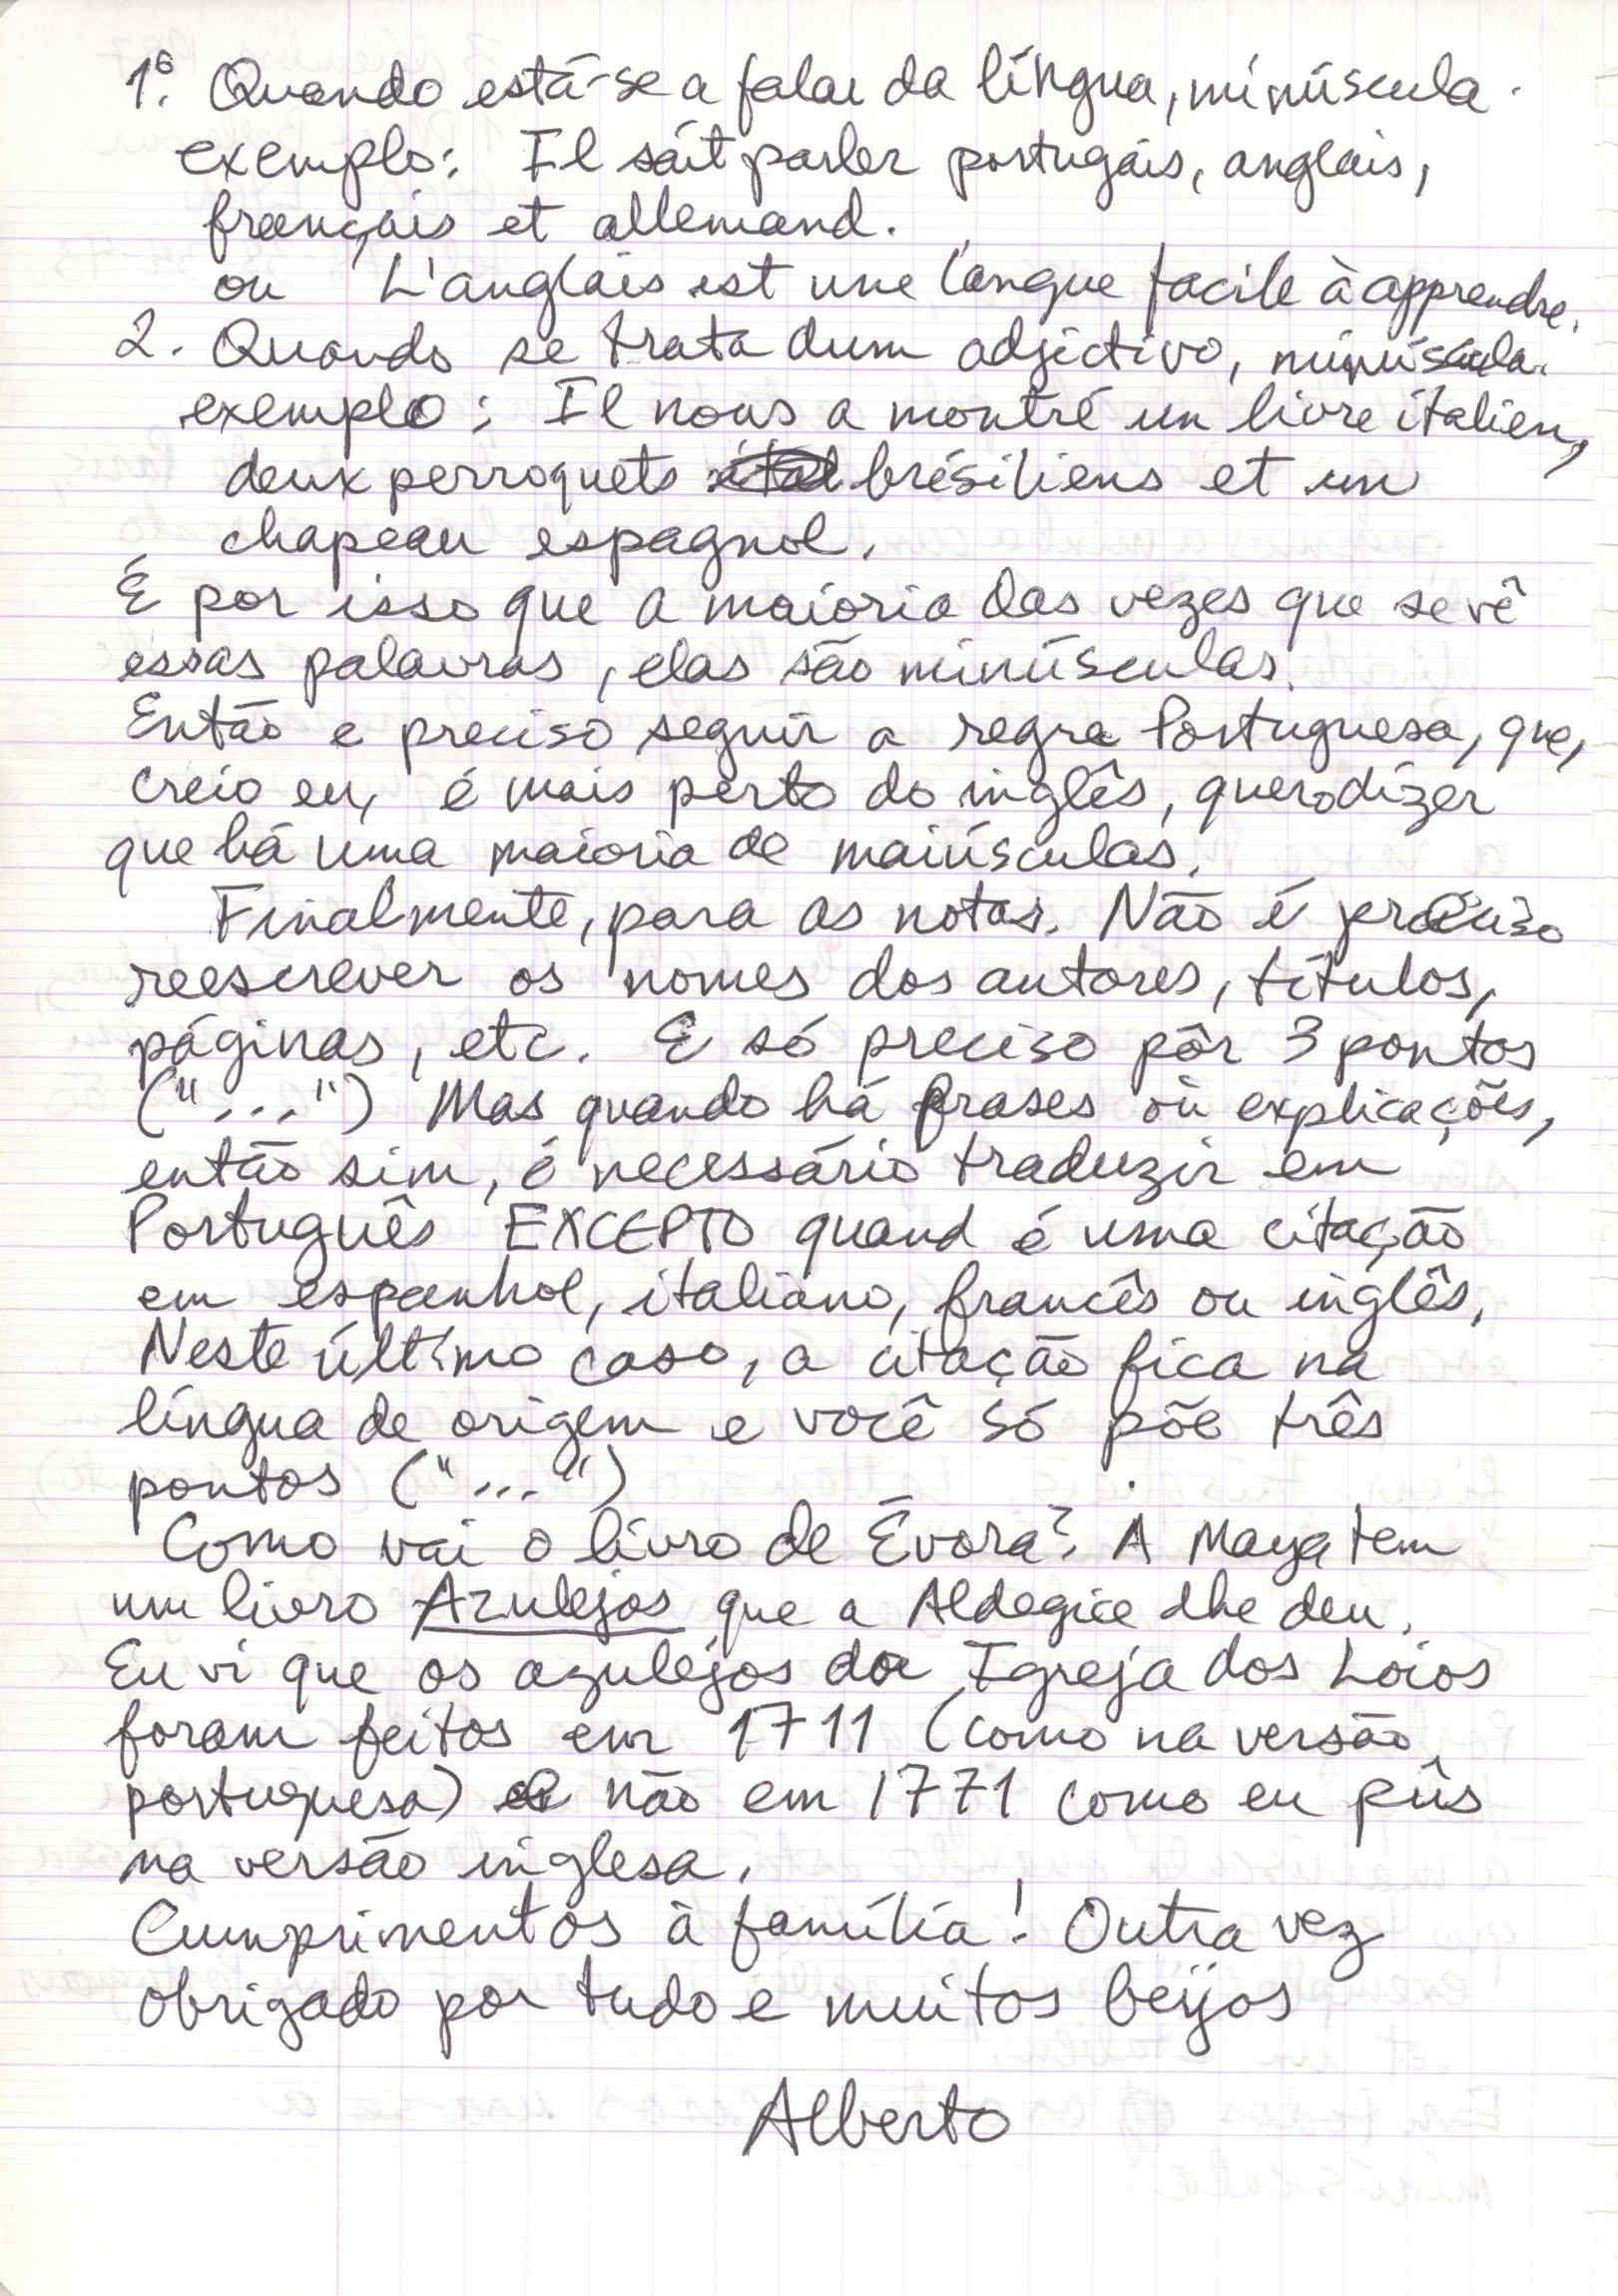 1º. Quando está-se a falar da língua, minúscula.
exemplo: Il sait parler portugais, anglais,
français et allemand.
ou L'anglais est une langue facile à apprendre.
2. Quando se trata dum adjectivo, minúscula.
exemplo: Il nous a montré un livre italien,
deux perroquets brésiliens et un
chapeau espagnol.
É por isso que a maioria das vezes que se vê
essas palavras, elas são minúsculas.
Então e preciso seguir a regra Portuguesa, que,
creio eu, é mais perto do inglês, quero dizer
que há uma maioria de maiúsculas.
Finalmente, para as notas. Não é preciso
reescrever os nomes dos autores, títulos,
páginas, etc. E só preciso pôr 3 pontos
("...") Mas quando há frases où explicações,
então sim, é necessário traduzir em
Português EXCEPTO quand é uma citação
em espanhol, italiano, francês ou inglês.
Neste último caso, a citação fica na
língua de origem e você só põe três
pontos ("...")
Como vai o livro de Évora? A Maya tem
um livro Azulejos que a Aldegice lhe deu.
Eu vi que os azulejos da Igreja dos Loios
foram feitos em 1711 (como na versão
portuguesa) e não em 1771 como eu pûs
na versão inglesa.
Cumprimentos à família! Outra vez
obrigado por tudo e muitos beijos
Alberto